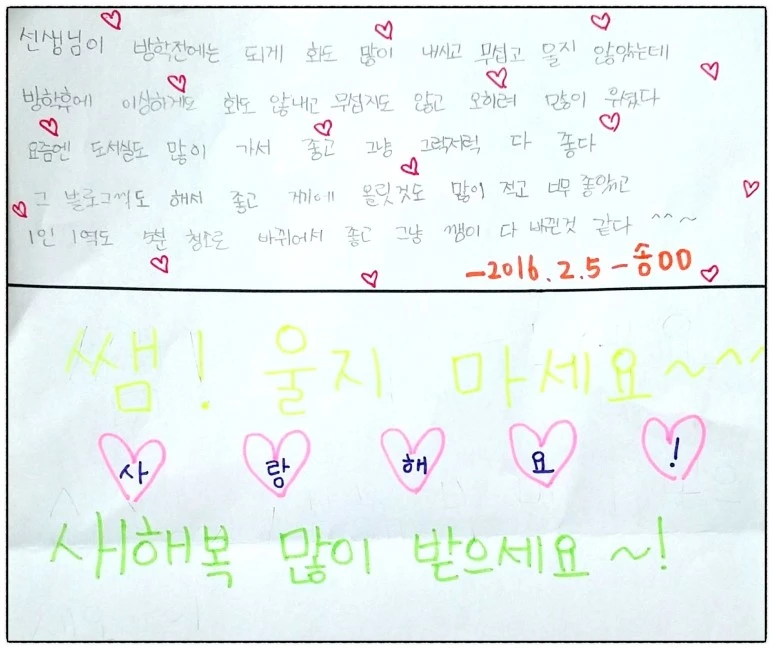 선생님이 방학전에는 되게 화도 많이 내시고 무섭고 울지 않았는데
방학후에 이상하게도 화도 않내고 무섭지도 않고 오히려 많이 우셨다
요즘엔 도서실도 많이 가서 좋고 그냥 그럭저럭 다 좋다
그 블로그씨도 해서 좋고 거기에 올릴것도 많이 적고 너무 좋았고
1인 1역도 5분 청소로 바뀌어서 좋고 그냥 쌤이 다 바뀐것 같다 ^^~
-2016.2.5-송OO
쌤! 울지 마세요~^^
사랑해요!
새해복 많이 받으세요~!